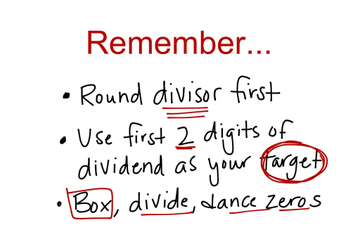 Remember...
• Round divisor first
• Use first 2 digits of
dividend as your target
• Box, divide, dance zeros